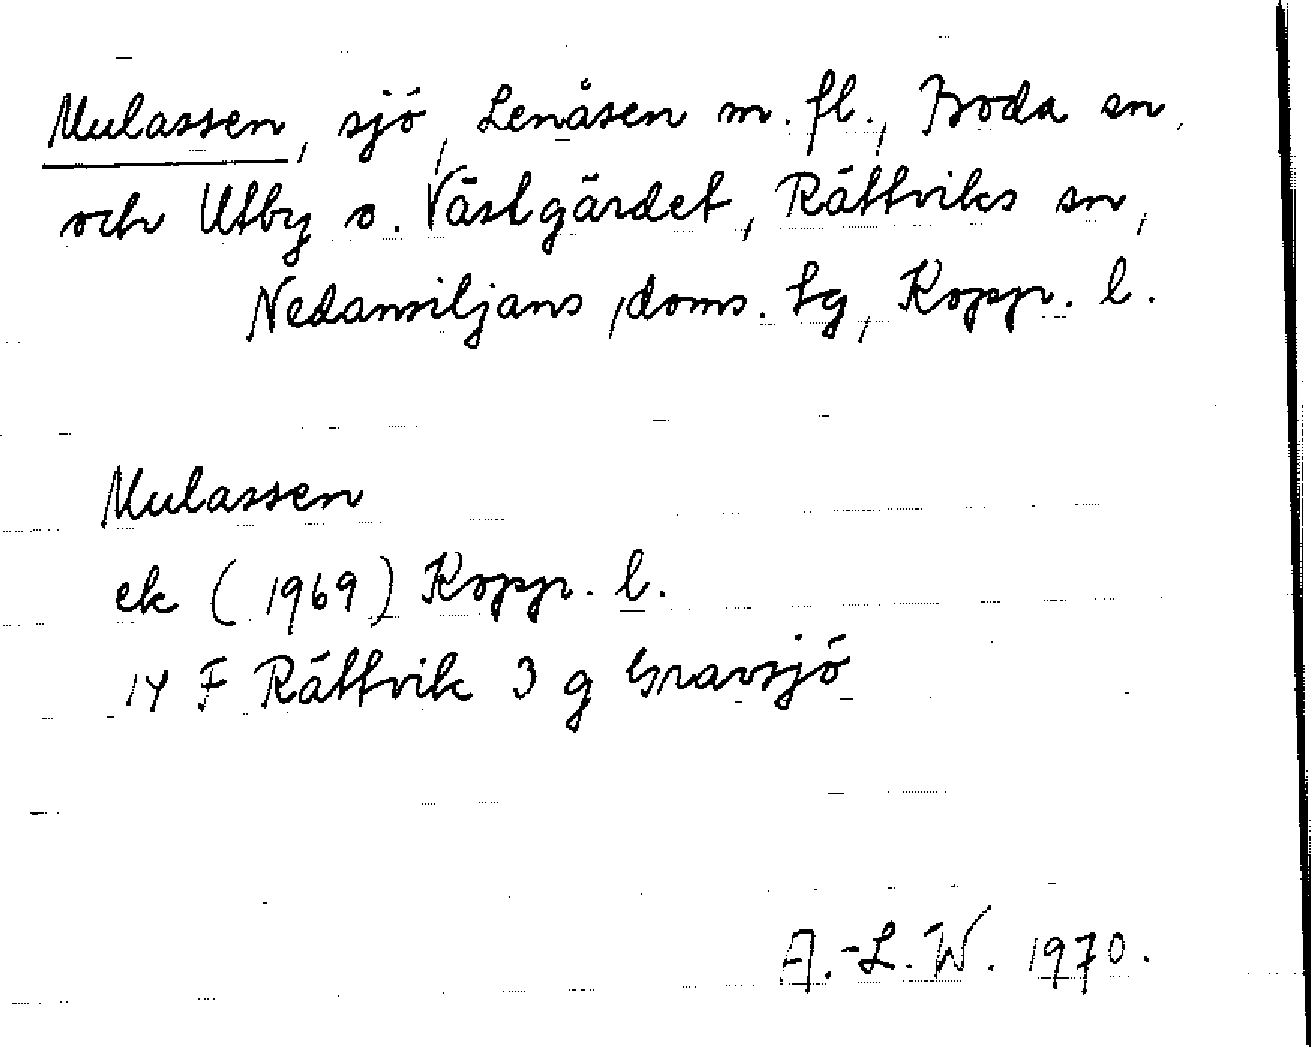 Mulassen, sjö, Lenåsen m. fl., Boda sn
och Utby o. Västgärdet, Rättviks sn,
Nedansiljans doms. tg, Kopp. l.
Mulassen
ek (1969) Kopp. l.
14 F Rättvik 3 g Gravsjö
A.-L. W. 1970.